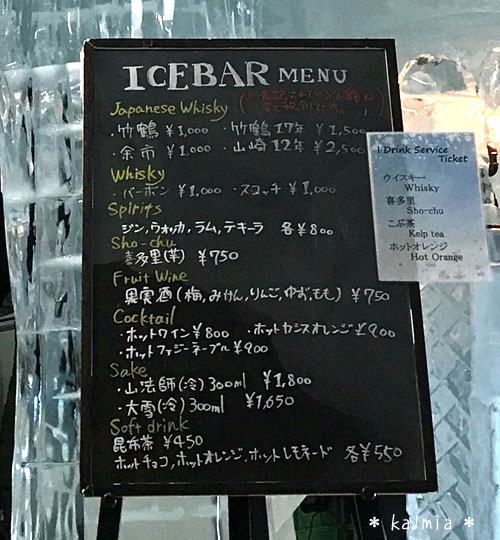 ICEBAR MENU
(表記されている金額は
全て税別です。)
Japanese Whisky
・竹鶴 ¥1,000 ・竹鶴17年 ¥1,500
・余市 ¥1,000 ・山崎12年 ¥2,500
Whisky
・バーボン ¥1,000 ・スコッチ ¥1,000
Spirits
ジン,ウォッカ,ラム,テキーラ 各¥800
Sho-chu
喜多里(芋) ¥750
Fruit Wine
果実酒(梅,みかん,りんご,ゆず,もも) ¥750
Cocktail
・ホットワイン¥800 ・ホットカシスオレンジ¥900
・ホットファジーネーブル¥900
Sake
・山法師(冷)300ml ¥1,800
・大雪(冷)300ml ¥1,650
Soft drink
昆布茶 ¥450
ホットチョコ,ホットオレンジ,ホットレモネード 各¥550
1 Drink Service
Ticket
ウイスキー
Whisky
喜多里
Sho-chu
こぶ茶
Kelp tea
ホットオレンジ
Hot Orange
* kalmia *